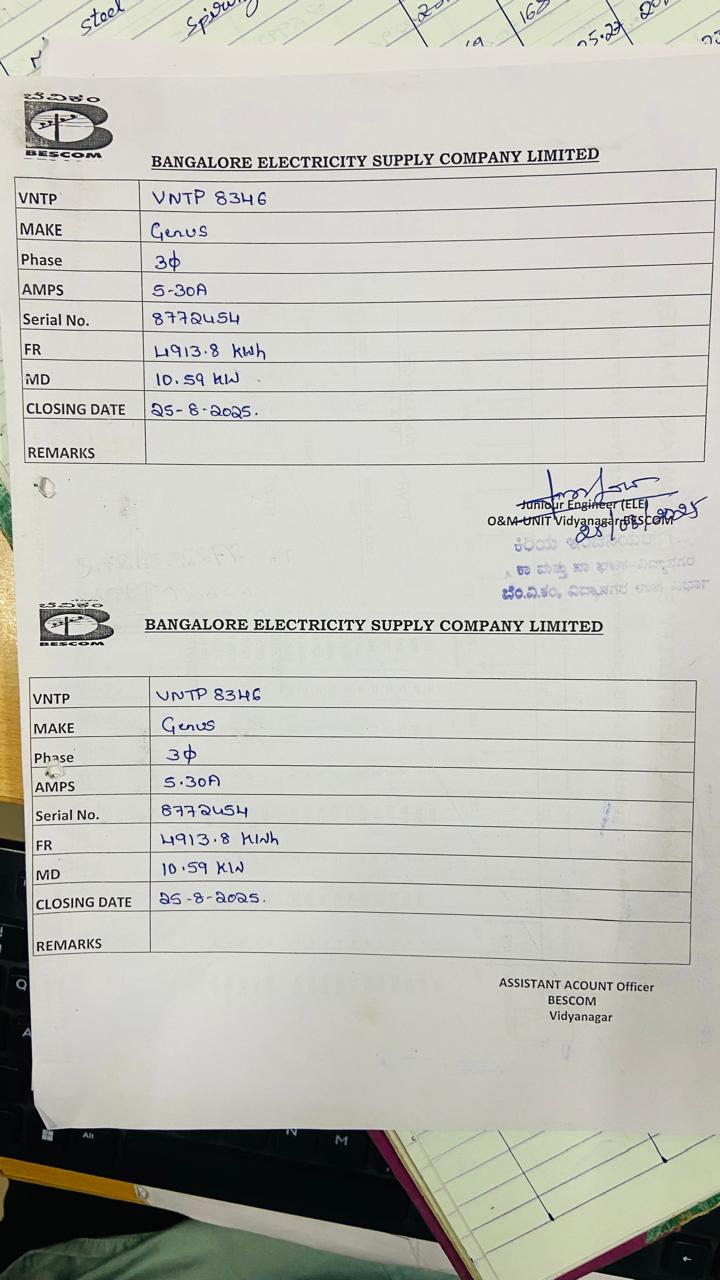 steel
Spiru
168
05.27
ಬೆವಿಕಂ
BESCOM
BANGALORE ELECTRICITY SUPPLY COMPANY LIMITED
VNTP VNTP 8346
MAKE Genus
Phase 3ϕ
AMPS 5-30A
Serial No. 8772454
FR 4913.8 KWh
MD 10.59 KW
CLOSING DATE 25-8-2025.
REMARKS
Juniour Engineer (ELE)
O&M-UNIT Vidyanagar-BESCOM
25/08/2025
ಕಿರಿಯ ಇಂಜಿನಿಯರ್
ಕಾ ಮತ್ತು ಪಾ ಘಟಕ-ವಿದ್ಯಾನಗರ
ಬೆಂ.ವಿ.ಕಂ, ವಿದ್ಯಾನಗರ ಉಪ ವಿಭಾಗ
ಬೆವಿಕಂ
BESCOM
BANGALORE ELECTRICITY SUPPLY COMPANY LIMITED
VNTP VNTP 8346
MAKE Genus
Phase 3ϕ
AMPS 5.30A
Serial No. 8772454
FR 4913.8 KWh
MD 10.59 KW
CLOSING DATE 25-8-2025.
REMARKS
ASSISTANT ACOUNT Officer
BESCOM
Vidyanagar
Q
A
Alt
N
M